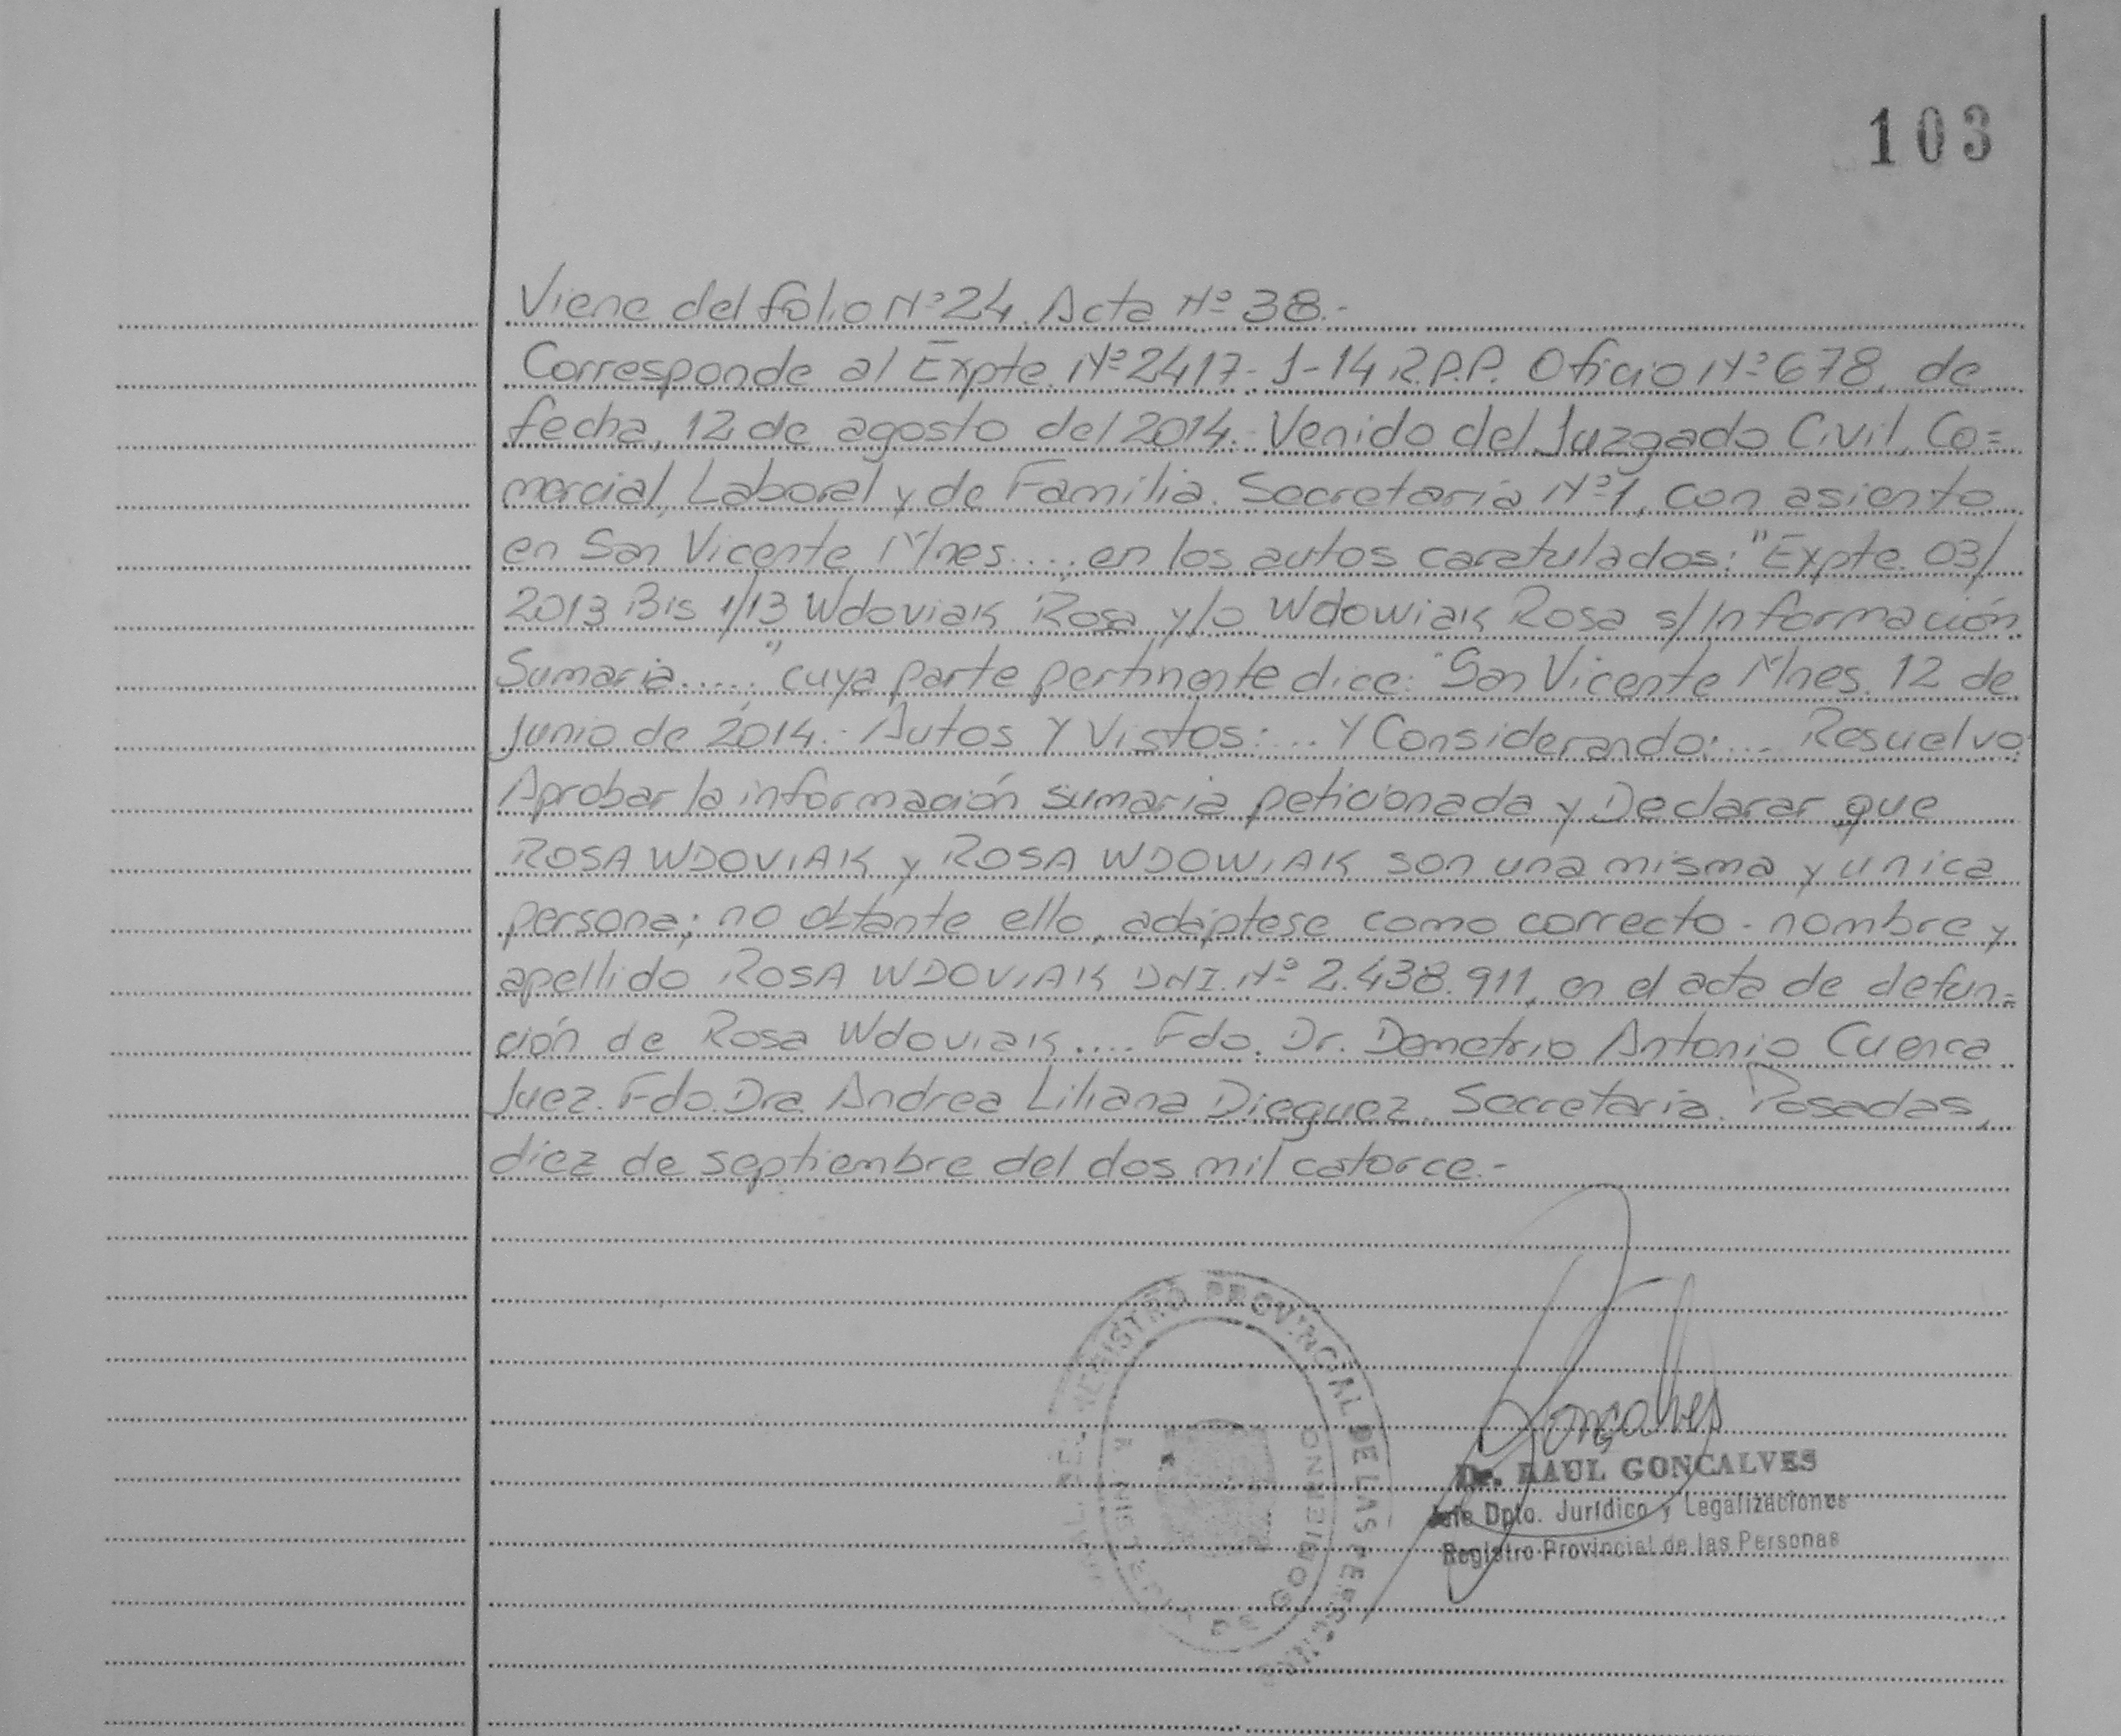 103
Viene del folio Nº 24. Acta Nº 38.-
Corresponde al Expte. Nº 2417-J-14 R.P.P. Oficio Nº 678, de
fecha, 12 de agosto del 2014.- Venido del Juzgado Civil, Co=
mercial, Laboral y de Familia. Secretaría Nº 1, con asiento
en San Vicente Mnes.... en los autos caratulados: "Expte. 03/
2013 Bis 1/13 Wdoviak Rosa y/o Wdowiak Rosa s/Información
Sumaria....." cuya parte pertinente dice: "San Vicente Mnes. 12 de
Junio de 2014.- Autos Y Vistos:... Y Considerando:.... Resuelvo:
Aprobar la información sumaria peticionada y Declarar que
ROSA WDOVIAK y ROSA WDOWIAK son una misma y unica
persona; no obtante ello, adáptese como correcto - nombre y
apellido ROSA WDOVIAK DNI. Nº 2.438.911, en el acta de defun=
ción de Rosa Wdoviak.... Fdo. Dr. Demetrio Antonio Cuenca
Juez. Fdo. Dra Andrea Liliana Dieguez. Secretaria. Posadas,
diez de septiembre del dos mil catorce.-
REGISTRO PROVINCIAL DE LAS PERSONAS
DE GOBIERNO
Goncalves
Dr. RAUL GONCALVES
Jefe Dpto. Jurídico y Legalizaciones
Registro Provincial de las Personas